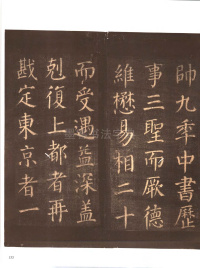 帥九年中書歷
事三聖而厥德
維懋易相二十
而受遇益深蓋
剋復上都者再
戡定東京者一